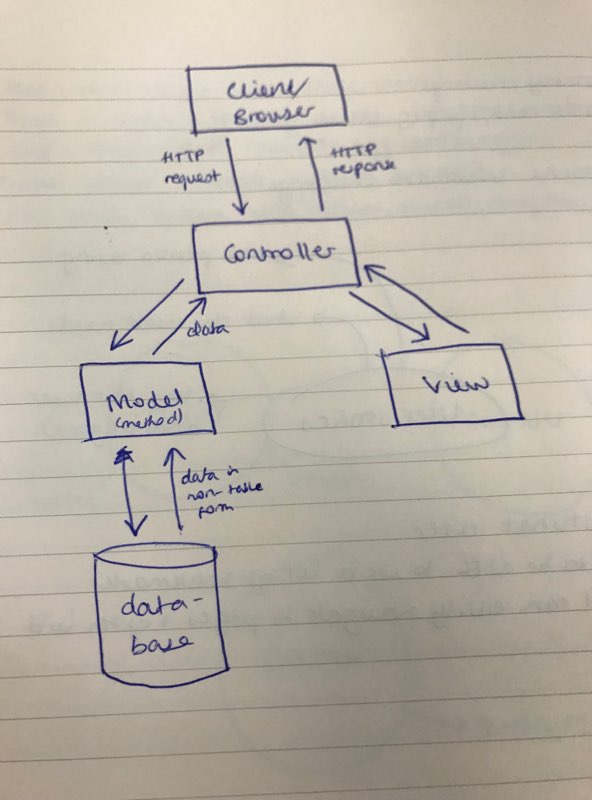 Client/
Browser
HTTP
request
HTTP
response
Controller
data
Model
(method)
View
data in
non-table
form
data-
base